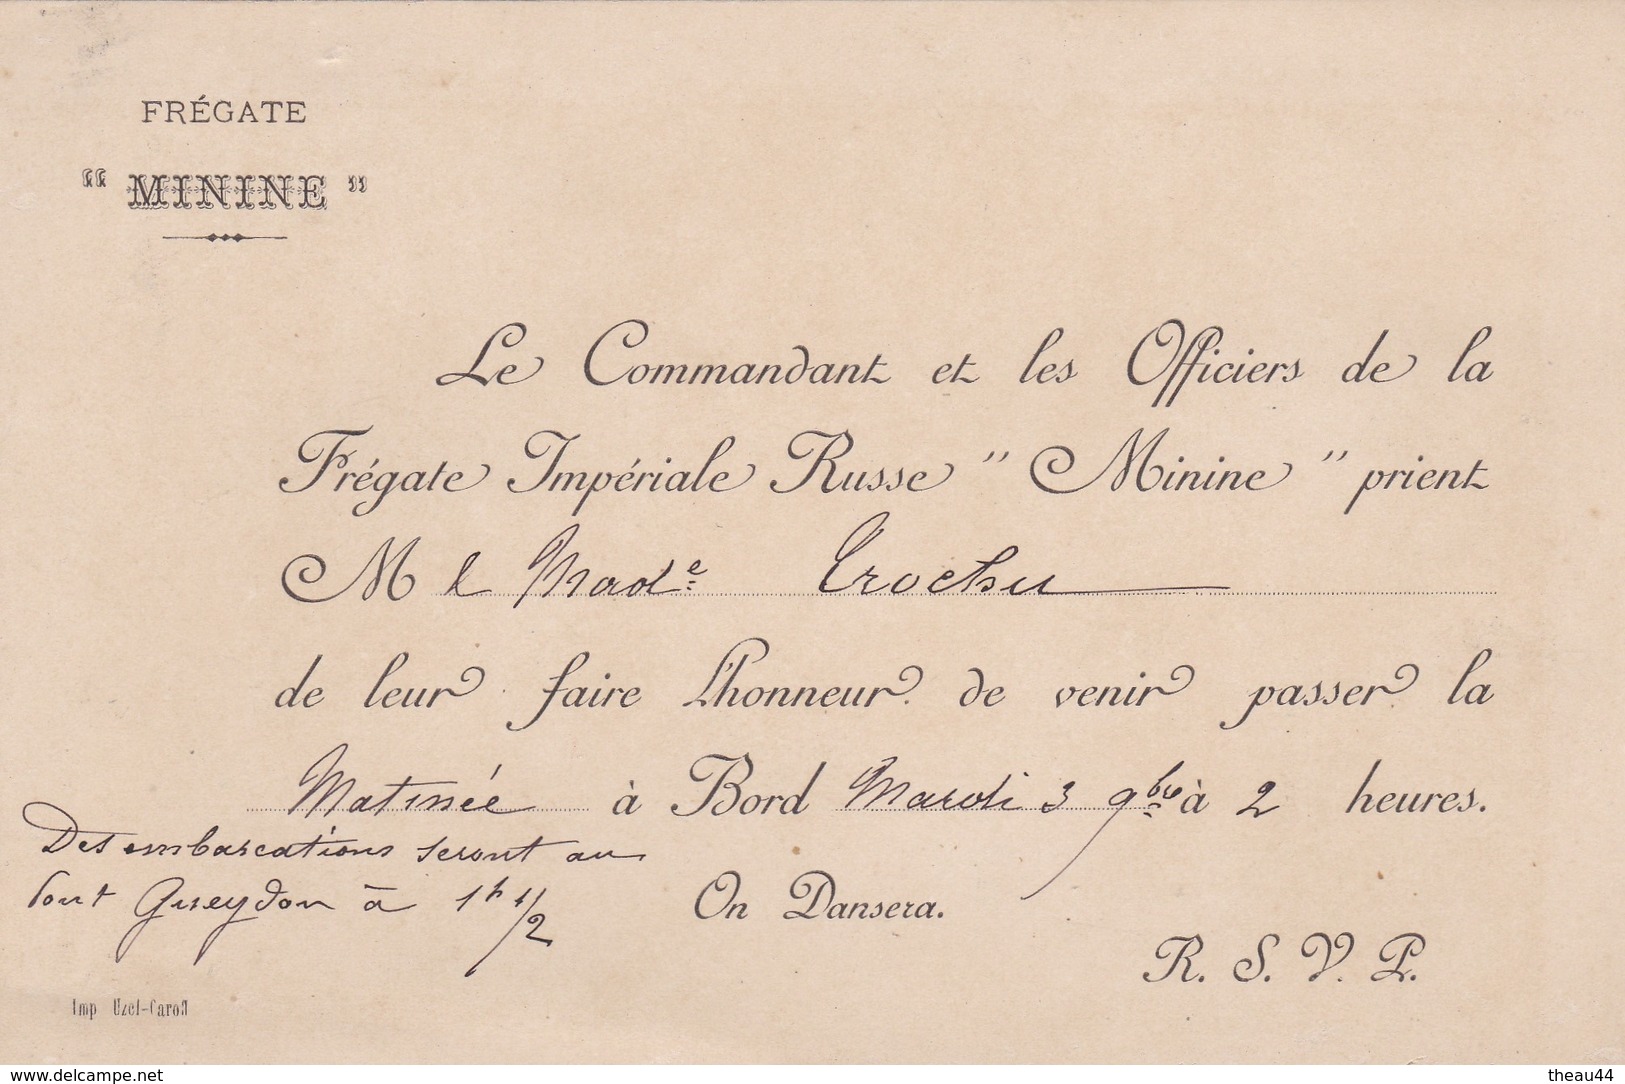 FRÉGATE
“ MININE ”
Le Commandant et les Officiers de la
Frégate Impériale Russe " Minine " prient
M & Made Trochu
de leur faire l'honneur de venir passer la
Matinée à Bord Mardi 3 9bre à 2 heures.
Des embarcations seront au
Pont Gueydon à 1h 1/2
On Dansera.
R. S. V. P.
Imp Uzel-Caroff
www.delcampe.net
theau44